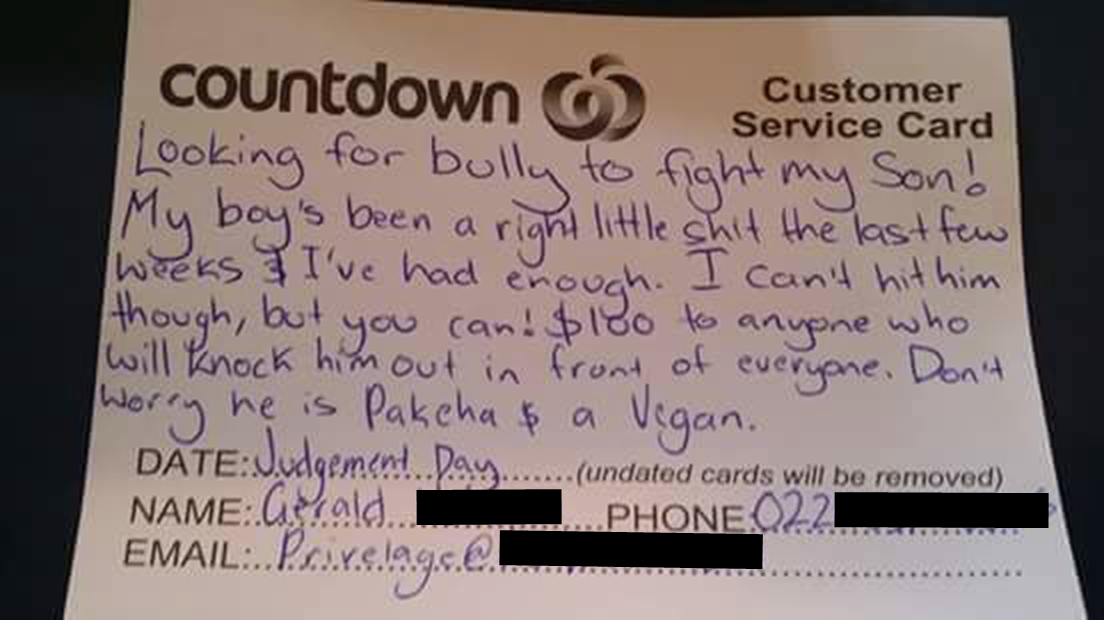 countdown
Customer
Service Card
Looking for bully to fight my Son!
My boy's been a right little shit the last few
weeks & I've had enough. I can't hit him
though, but you can! $100 to anyone who
will knock him out in front of everyone. Don't
worry he is Pakeha & a Vegan.
DATE: Judgement Day (undated cards will be removed)
NAME: Gerald PHONE 022
EMAIL: Privelage@